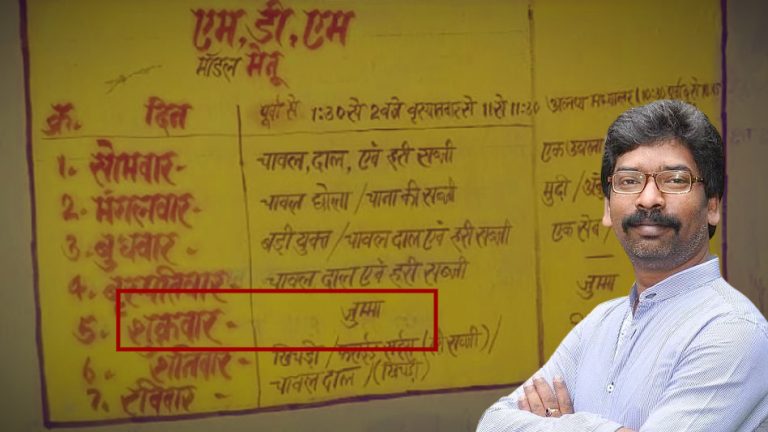 एम.डी.एम
मॉडल मेनू
क्र. दिन पूर्वा से 1:30 से 2 बजे वृहस्पतवार से 11 से 11:30
1. सोमवार- चावल, दाल, एवं हरी सब्जी एक
2. मंगलवार- चावल छोला / चाना की सब्जी मुढ़ी /
3. बुधवार- बड़ी युक्त / चावल दाल एवं हरी सब्जी एक सेब /
4. चावल दाल एवं हरी सब्जी
5. शुक्रवार- जुम्मा जुम्मा
6. शनिवार- खिचड़ी /
7. रविवार- चावल दाल / (खिचड़ी)